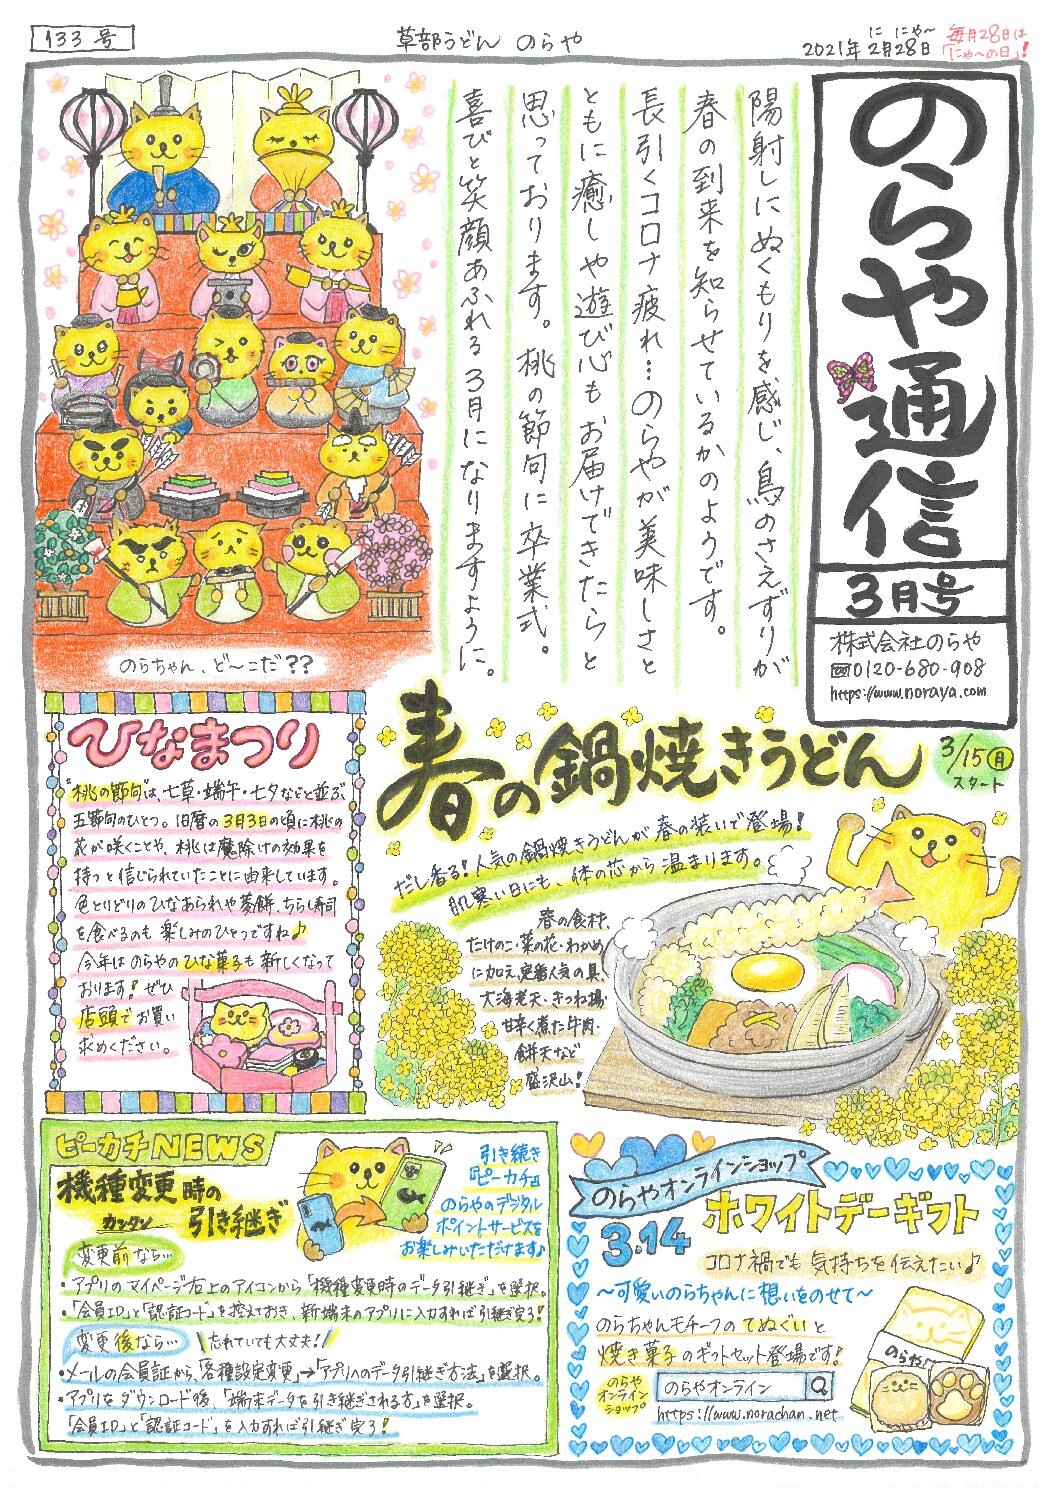 133 号
草部うどん のらや
に にゃ〜
2021年2月28日
毎月28日は
「にゃ〜の日」!
のらや通信
3月号
株式会社のらや
☎0120-680-908
https://www.noraya.com
陽射しにぬくもりを感じ、鳥のさえずりが
春の到来を知らせているかのようです。
長引くコロナ疲れ…のらやが美味しさと
ともに癒しや遊び心もお届けできたらと
思っております。桃の節句に卒業式。
喜びと笑顔あふれる3月になりますように。
のらちゃん、ど〜こだ??
ひなまつり
"桃の節句"は、七草・端午・七夕などと並ぶ、
五節句のひとつ。旧暦の3月3日の頃に桃の
花が咲くことや、桃は魔除けの効果を
持つと信じられていたことに由来しています。
色とりどりのひなあられや菱餅、ちらし寿司
を食べるのも楽しみのひとつですね♪
今年はのらやのひな菓子も新しくなって
おります!ぜひ
店頭でお買い
求めください。
春の鍋焼きうどん
3/15(月)
スタート
だし香る!人気の鍋焼きうどんが春の装いで登場!
肌寒い日にも、体の芯から温まります。
春の食材、
たけのこ・菜の花・わかめ
に加え、定番人気の具、
大海老天、きつね揚
甘辛く煮た牛肉・
餅天など
盛沢山!
ピーカチNEWS
機種変更時の
カンタン
引き継ぎ
引き続き
『ピーカチ』
のらやのデジタル
ポイントサービスを
お楽しみいただけます♪
変更前なら…
・アプリのマイページ右上のアイコンから「機種変更時のデータ引継ぎ」を選択。
・「会員ID」と「認証コード」を控えておき、新端末のアプリに入力すれば引継ぎ完了!
変更後なら… \忘れていても大丈夫!/
・メールの会員証から、「各種設定変更」→「アプリへのデータ引継ぎ方法」を選択。
・アプリをダウンロード後、「端末データを引き継ぎされる方」を選択。
「会員ID」と「認証コード」を入力すれば引継ぎ完了!
のらやオンラインショップ
3.14
ホワイトデーギフト
コロナ禍でも気持ちを伝えたい♪
〜可愛いのらちゃんに想いをのせて〜
のらちゃんモチーフのてぬぐいと
焼き菓子のギフトセット登場です!
のらや
オンライン
ショップ
のらやオンライン
https://www.norachan.net
のらや